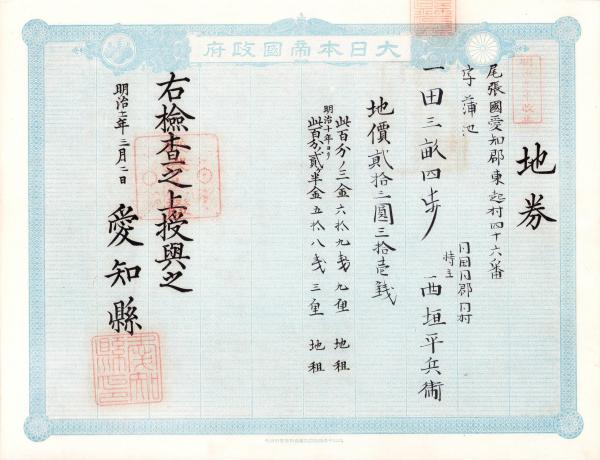 府政國帝本日大
地券
尾張國愛知郡東起村四十六番
字蒲池
一田三畝四歩
同国同郡同村
持主 西垣平兵衛
地價貳拾三圓三拾壱錢
此百分ノ三金六拾九銭九厘 地租
明治十年ヨリ
此百分ノ貳ケ半金五拾八銭三厘 地租
右檢查之上授與之
明治十二年三月二日
愛知縣
愛知縣印